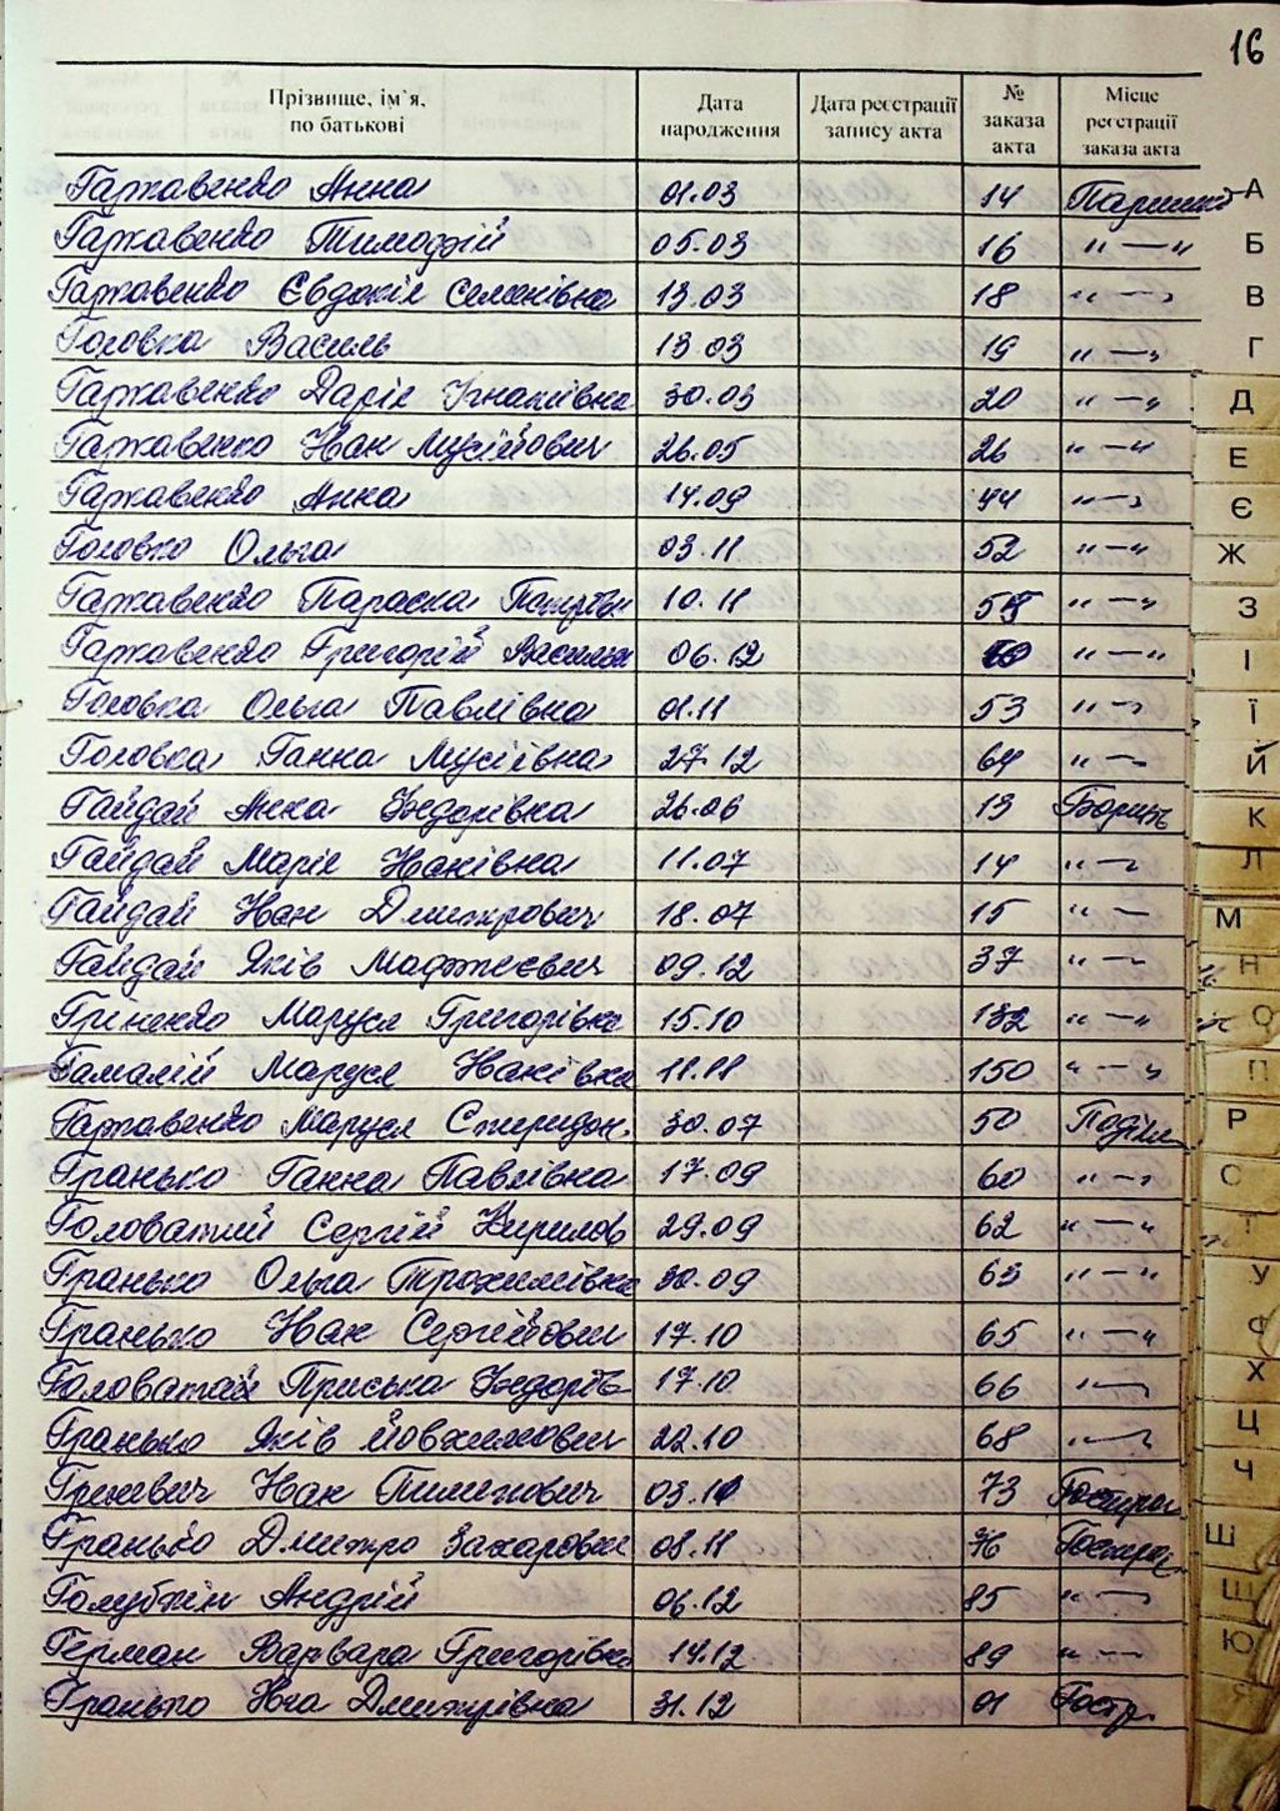 16
Прізвище, ім'я, по батькові Дата народження Дата реєстрації запису акта № заказа акта Місце реєстрації заказа акта
Гаркавенко Анна 01.03 14
Гаркавенко Тимофій 05.03 16 " — "
Гаркавенко Євдокія Семенівна 13.03 18 " — "
Головка Василь 13.03 19 " — "
Гаркавенко Дарія Ігнатівна 30.03 20 " — "
Гаркавенко Іван Мусійович 26.05 26 " — "
Гаркавенко Анна 14.09 44 " — "
Головко Ольга 03.11 52 " — "
Гаркавенко Параска 10.11 " — "
Гаркавенко Григорій 06.12 " — "
Головка Ольга Павлівна 01.11 53 " — "
Головка Ганна Мусіївна 27.12 64 " — "
Гайдай Анна Федорівна 26.06 13
Гайдай Марія Іванівна 11.07 14 " — "
Гайдай Іван Дмитрович 18.07 15 " — "
Гайдай Яків Мафтеєвич 09.12 37 " — "
Гріненко Маруся Григорівна 15.10 132 " — "
Гамалій Маруся Іванівна 11.11 150 " — "
Гаркавенко Маруся Спиридон. 30.07 50
Гранько Ганна Павлівна 17.09 60 " — "
Головатий Сергій Кирилов 29.09 62 " — "
Гранько Ольга Трохимівна 30.09 63 " — "
Гранько Іван Сергійович 17.10 65 " — "
Головатая Приська Федорів 17.10 66 " — "
Гранько Яків Йовхимович 22.10 68 " — "
Іван Пименович 73
Гранько Дмитро Захарович 08.11 76
Голубкін Андрій 06.12 85 " — "
Герман Варвара Григорівна 14.12 89 " — "
Гранько Дмитрівна 31.12 91 Гостр.
А
Б
В
Г
Д
Е
Є
Ж
З
І
Ї
Й
К
Л
М
Н
О
П
Р
С
Т
У
Ф
Х
Ц
Ч
Ш
Щ
Ю
Я